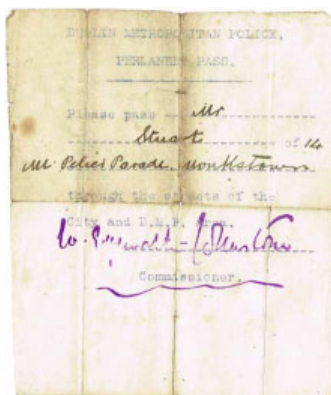 DUBLIN METROPOLITAN POLICE.
PERMANENT PASS.
Please pass Mr
Stuart of 14
Parade. Monkstown
through the streets of the
City and D.M.P. Area.
W. Edgeworth-Johnstone
Commissioner.